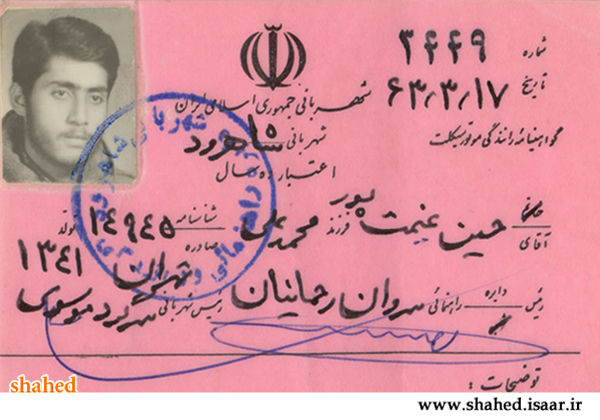 شماره ۳۴۴۹
تاریخ ۶۳,۳,۱۷
شهربانی جمهوری اسلامی ایران
گواهینامه رانندگی موتور سیکلت
شهربانی شاهرود
اعتبار ده سال
آقای حسین غنیمت پور فرزند محمدعلی شناسنامه ۱۴۹۴۵ متولد ۱۳۴۱
صادره تهران
رئیس دایره راهنمائی سروان رحمانیان رئیس شهربانی سرگرد موسوی
توضیحات :
shahed
www.shahed.isaar.ir